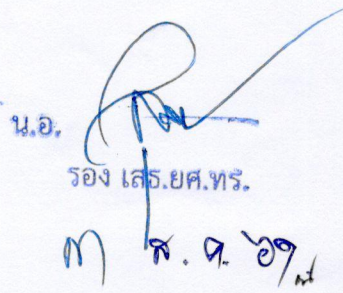 น.อ.
รอง เสธ.ยศ.ทร.
ส.ค. ๖๑